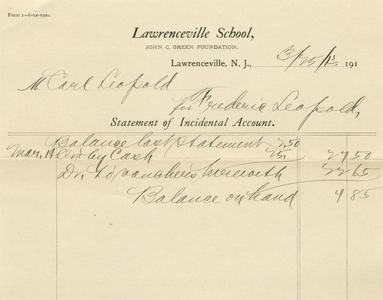 Form 1-6-22-1910.
Lawrenceville School,
JOHN C. GREEN FOUNDATION.
Lawrenceville, N. J., 3/25/13 191
M Carl Leopold
for Frederic Leopold,
Statement of Incidental Account.
Balance last Statement 2,50
Mar. Cr. by Cash 25, 27 50
Dr. to vouchers herewith 22 65
Balance on hand 4 85